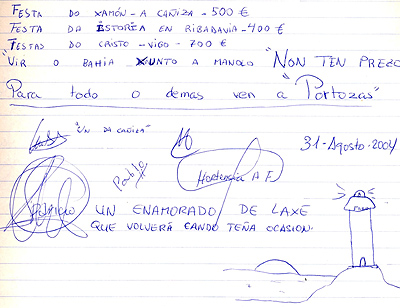 FESTA DO XAMÓN - A CAÑIZA - 500 €
FESTA DA ISTORIA EN RIBADAVIA - 400 €
FESTAS DO CRISTO - VIGO - 700 €
"VIR O BAHIA XUNTO A MANOLO "NON TEN PREZO
Para todo o demas ven a "Portozás"
"UN DA CAÑIZA"
31-Agosto-2004
Pablo
Hortensia A F.
UN ENAMORADO DE LAXE
QUE VOLVERÁ CANDO TEÑA OCASION.